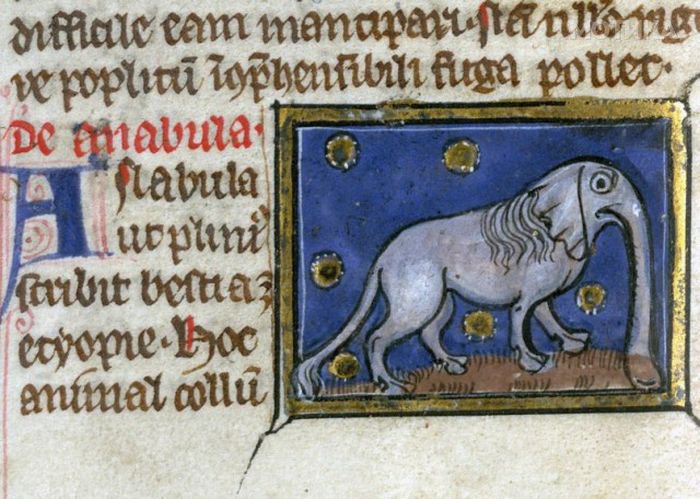 difficile eam mancipari. s; a nullo rige
ve poplitū īcōp̄hensibili fuga pollet.
De anabula.
Anabula
ut plini᷒
scribit bestia ē
etyopie. Hoc
animal collū